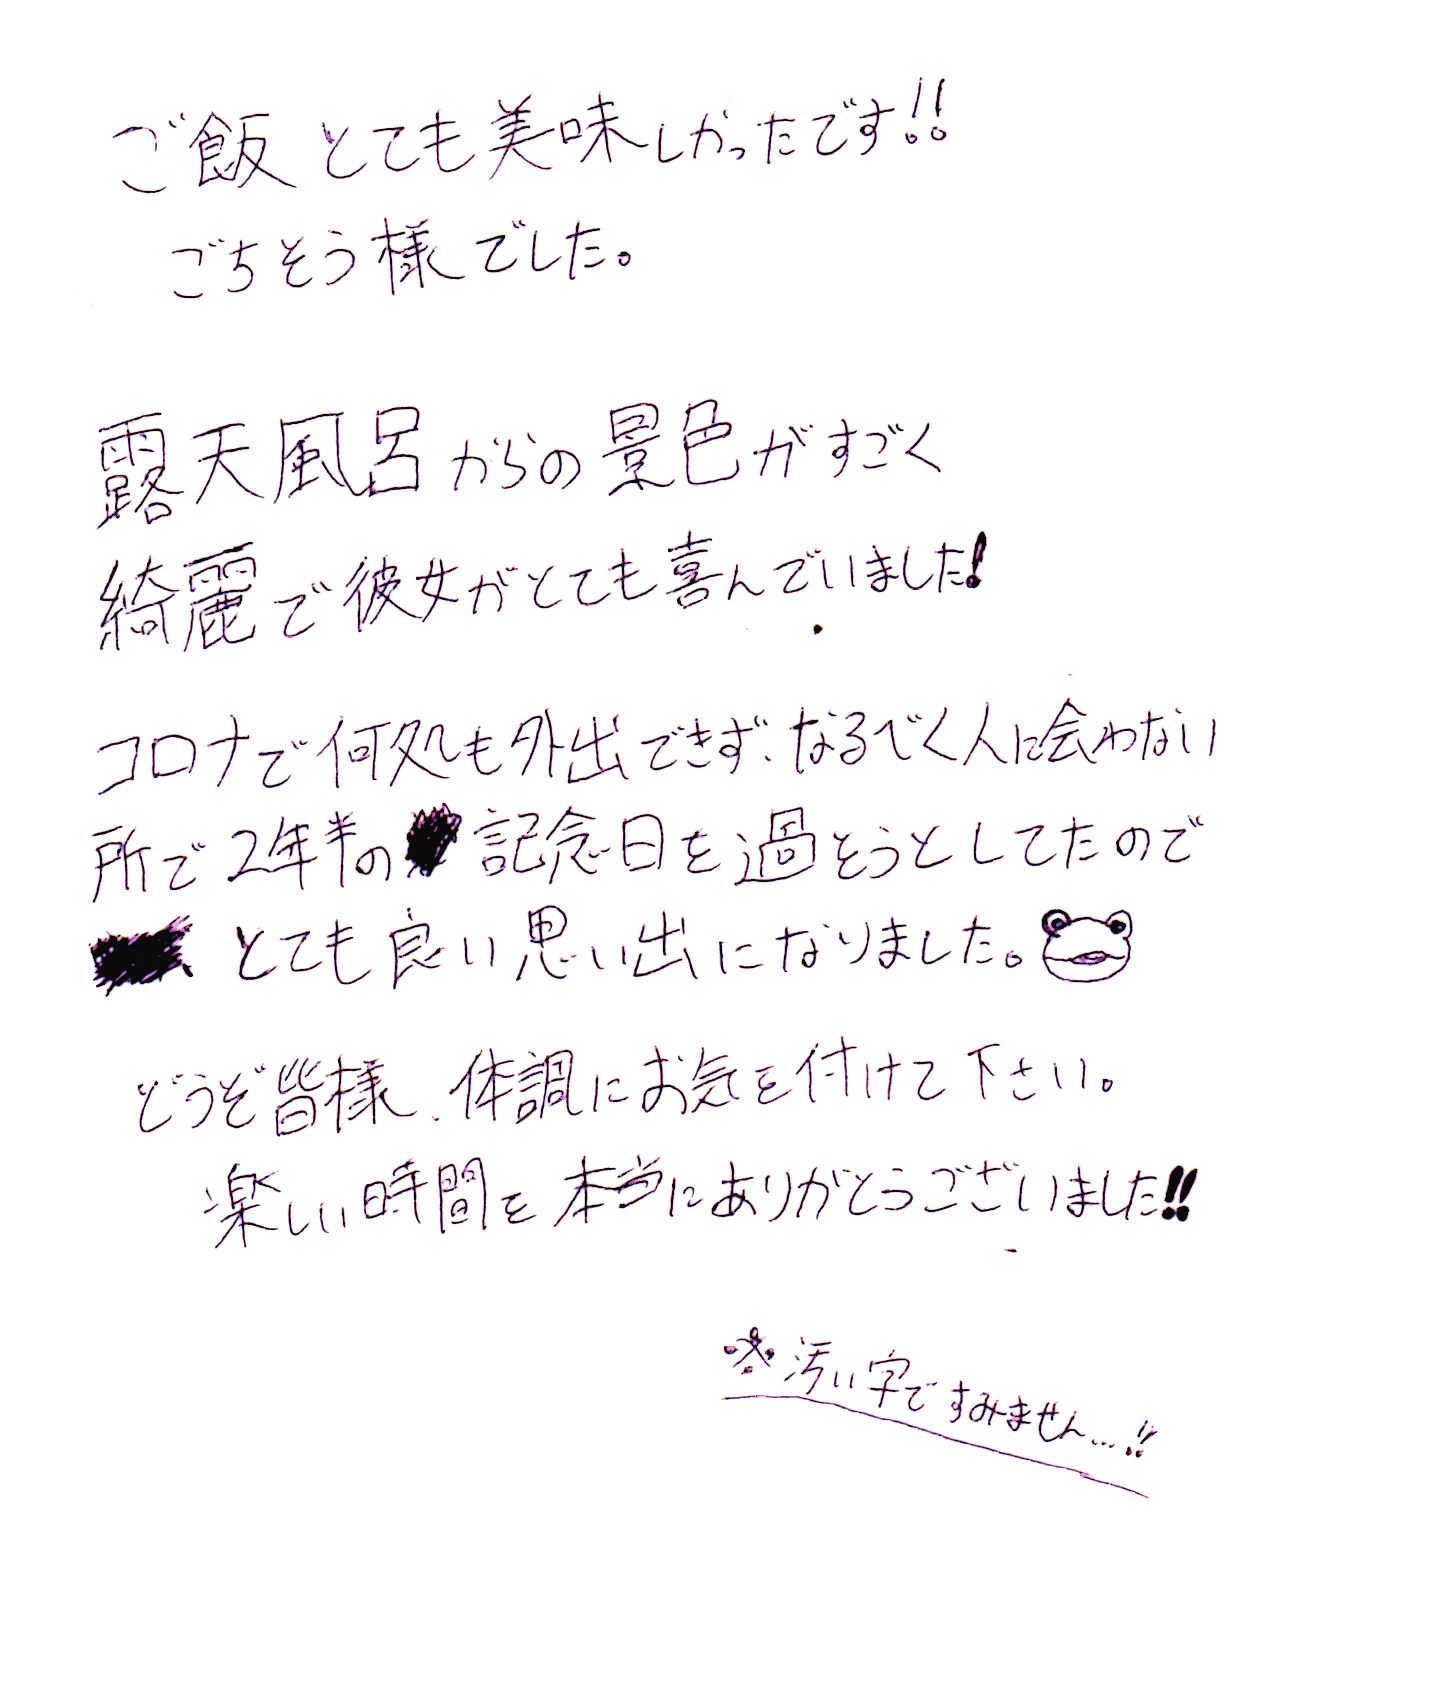 ご飯 とても美味しかったです!!
ごちそう様でした。
露天風呂からの景色がすごく
綺麗で彼女がとても喜んでいました!
コロナで何処も外出できず、なるべく人に会わない
所で2年半の記念日を過そうとしてたので
とても良い思い出になりました。
どうぞ皆様、体調にお気を付けて下さい。
楽しい時間を本当にありがとうございました!!
※汚い字ですみません...!!